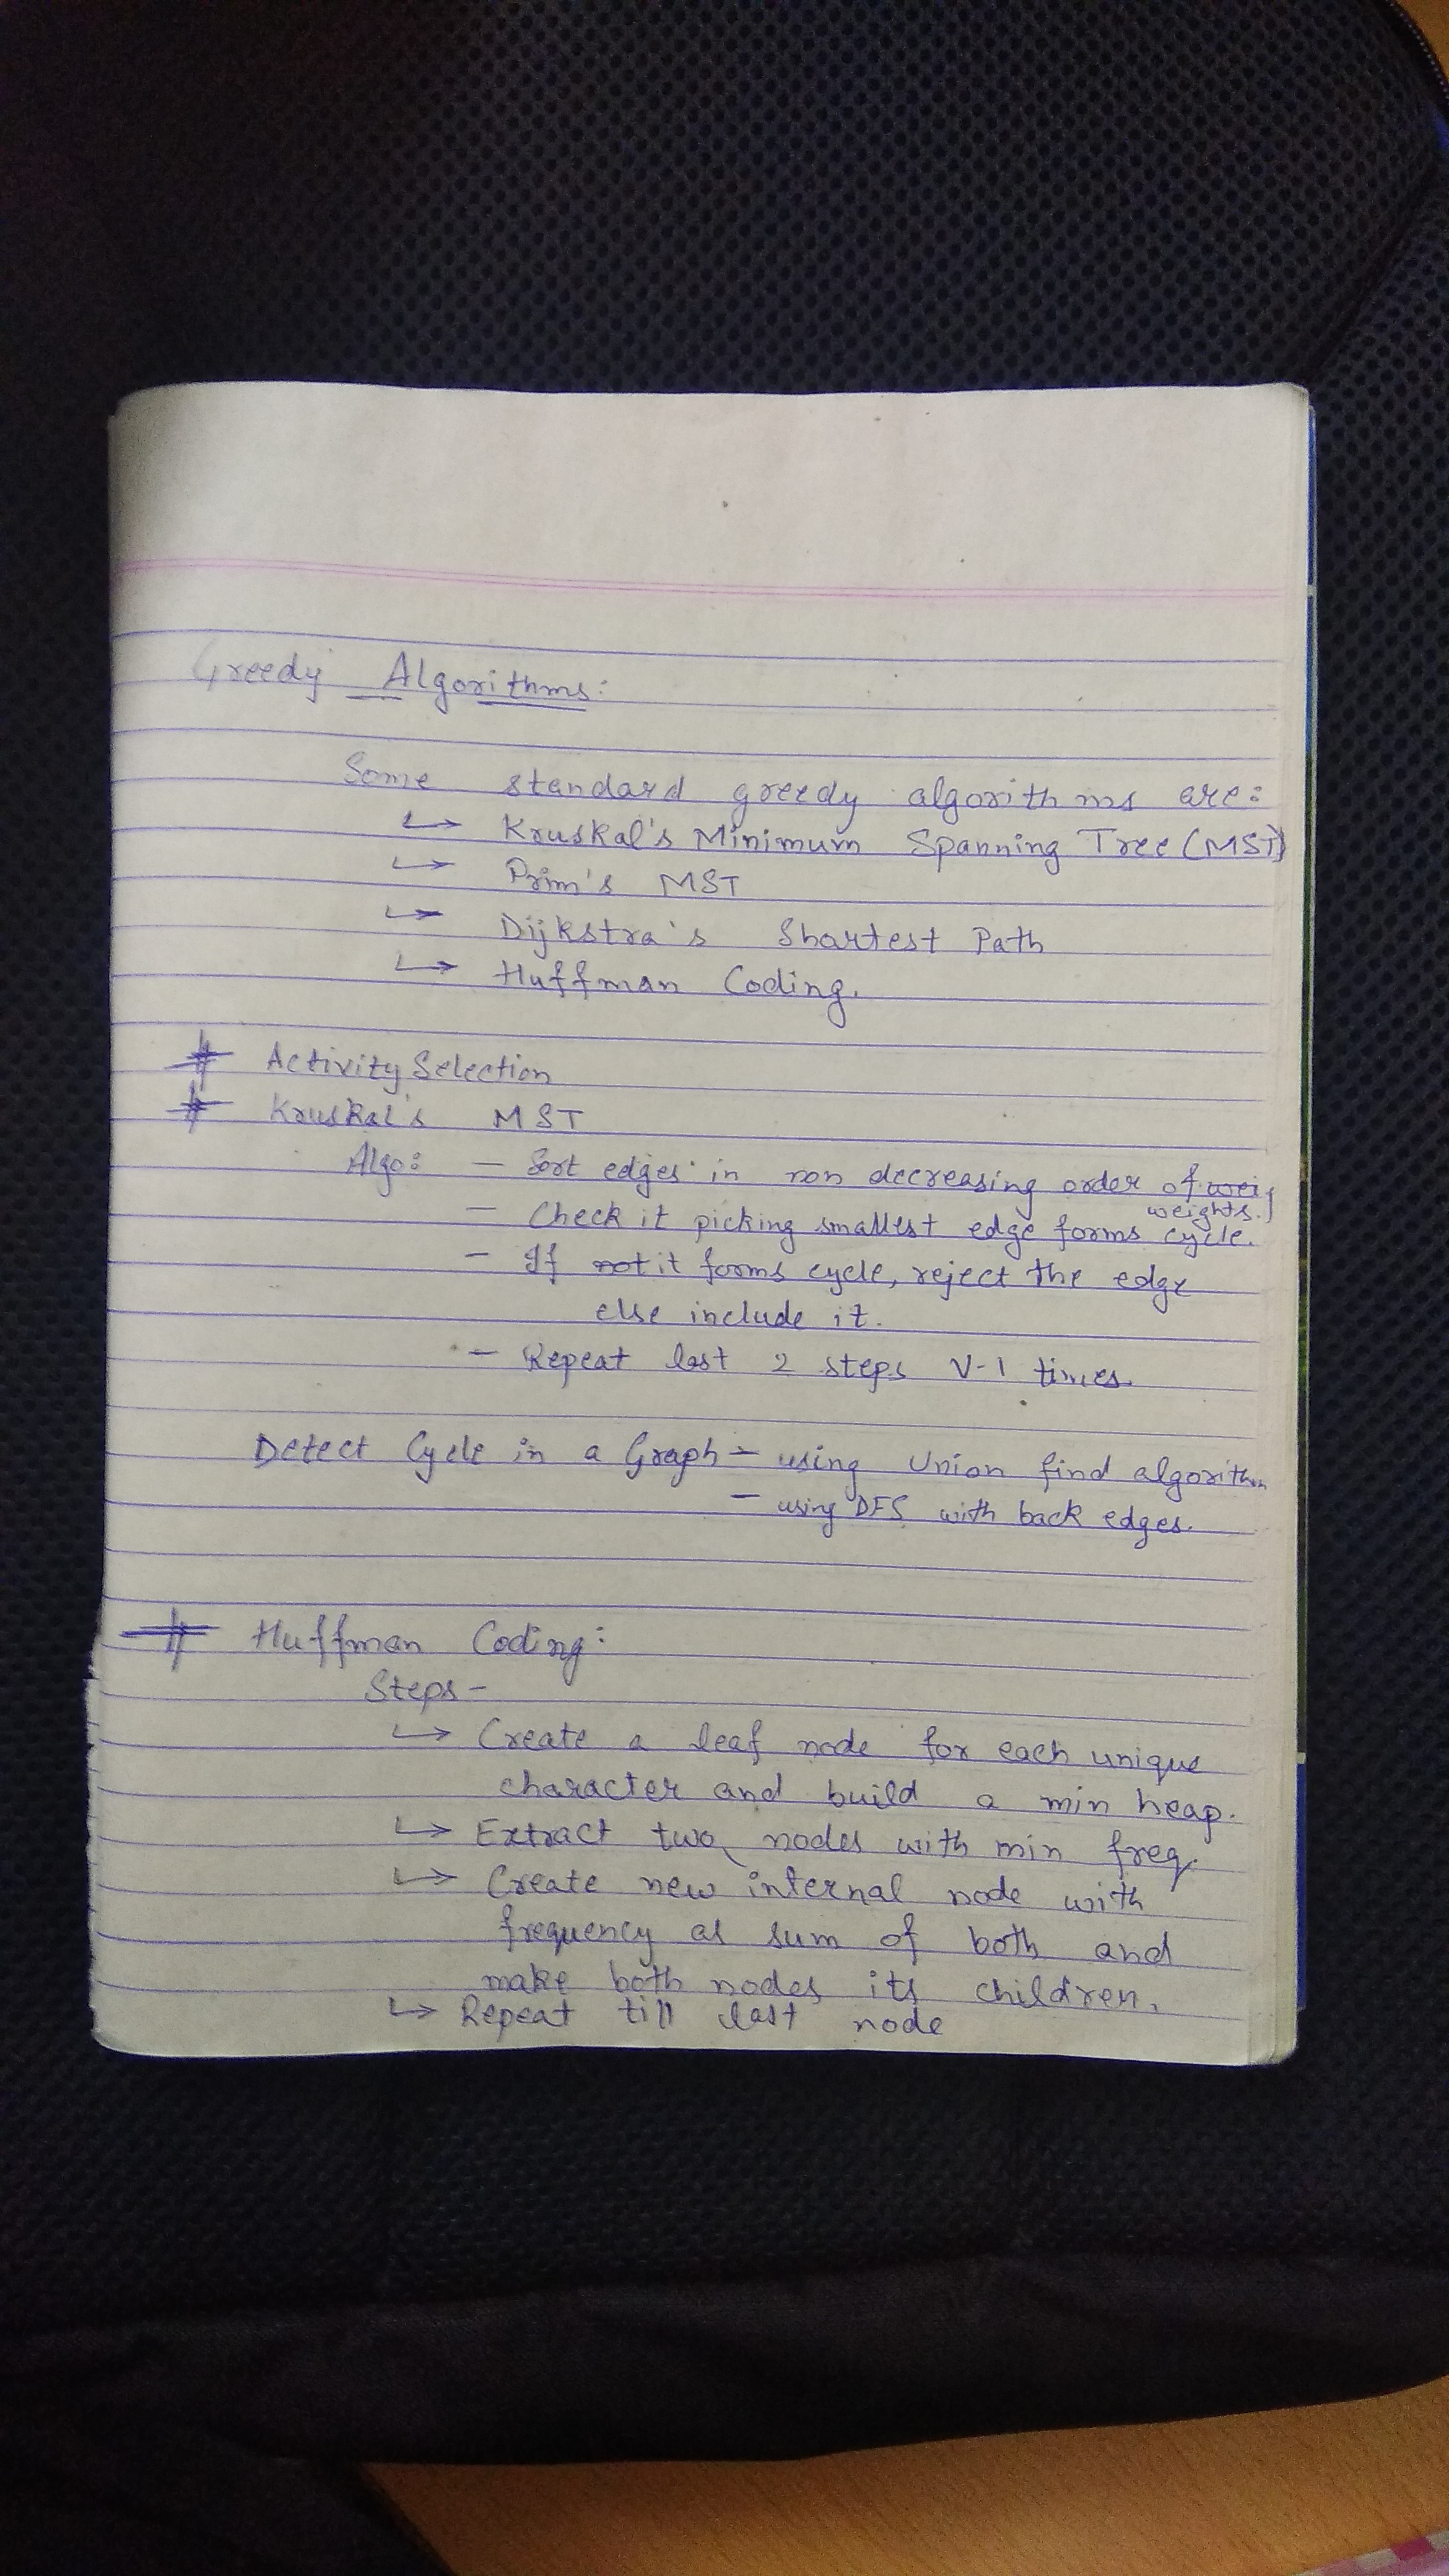 Greedy Algorithms:
Some standard greedy algorithms are:
↳ Kruskal's Minimum Spanning Tree (MST)
↳ Prim's MST
↳ Dijkstra's Shortest Path
↳ Huffman Coding.
# Activity Selection
# Kruskal's MST
Algo: - Sort edges in non decreasing order of wei
weights.
- Check it picking smallest edge forms cycle.
- If not it forms cycle, reject the edge
else include it.
- Repeat last 2 steps V-1 times.
Detect Cycle in a Graph - using Union find algorithm
- using DFS with back edges.
# Huffman Coding:
Steps -
↳ Create a leaf node for each unique
character and build a min heap.
↳ Extract two nodes with min freq.
↳ Create new internal node with
frequency as sum of both and
make both nodes its children.
↳ Repeat till last node